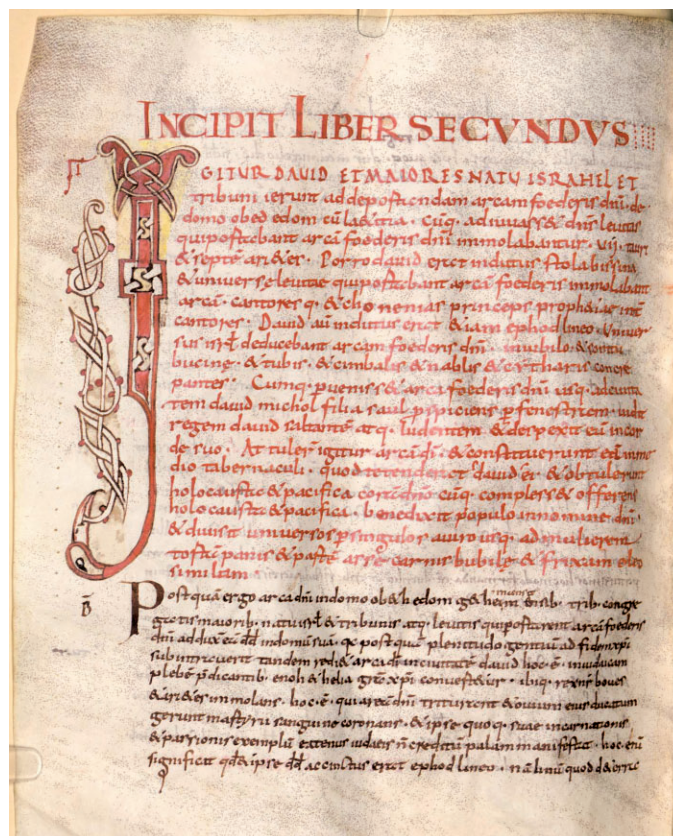 INCIPIT LIBER SECVNDVS
IGITUR DAUID ET MAIORES NATV ISRAHEL ET
tribuni ierunt ad deportandam arcam foederis dn̄i de
domo obed edom cū laetitia. Cūq. adiuuass& d̄ns leuitas
qui portabant arcā foederis dn̄i immolabantur. vij. tauri
& septē ari&es. Porro dauid erat indutus stola bissina
& uniuerse leuitae qui portabant arcā foederis immolabant
arcā. cantores q. & chonenias princeps proph&iae int
cantores. Dauid au indutus erat &iam ephod lineo. Uniuer
sus isrl̄ deducebant arcam foederis dn̄i. in iubilo & sonitu
bucine. & tubis. & cimbalis & nablis & citharis concre
pantes. Cumq. puenis& arca foederis dn̄i usq. ad ciuita
tem dauid michol filia saul pspiciens p fenestram. uidit
regem dauid saltantē atq. ludentem & despexit eū in cor
de suo. At tuler igitur arcā dī & constituerunt eā in me
dio tabernaculi. quod tetenderat ei dauid & obtulerunt
holocausta & pacifica corā dn̄o cūq. compless& offerens
holocausta & pacifica. benedixit populo in nomine dn̄i
& diuisit uniuersos p singulos a uiro usq. ad mulierem
tortū panis & partē asse carnis bubule & frixam oleo
similam.
Post quā ergo arca dn̄i in domo ob&h edom g&hei m̄ensib. trib. congre
gatis maiorib. natu isrl̄ & tribunis atq. leuitis qui portarent arcā foederis
dn̄i adduxit eā dd̄ in domū suā. qc post quā plenitudo gentiū ad fidem xpi
subintrauerit tandem redit arca dī in ciuitatē dauid hoc. ē. in iudaicam
plebē p̄dicantib. enoh & helia
& ari&es immolans. hoc. ē. qui areā dn̄i triturant & ouium eius ducatum
gerunt martyrii sanguine coronans. & ipse quoq. suae incarnationis
& passionis exemplū eatenus iudaeis n̄ creditū palam manifestat. hoc enī
significat qd̄ & ipse dd̄ accinctus erat ephod lineo. nā linū quod de terra